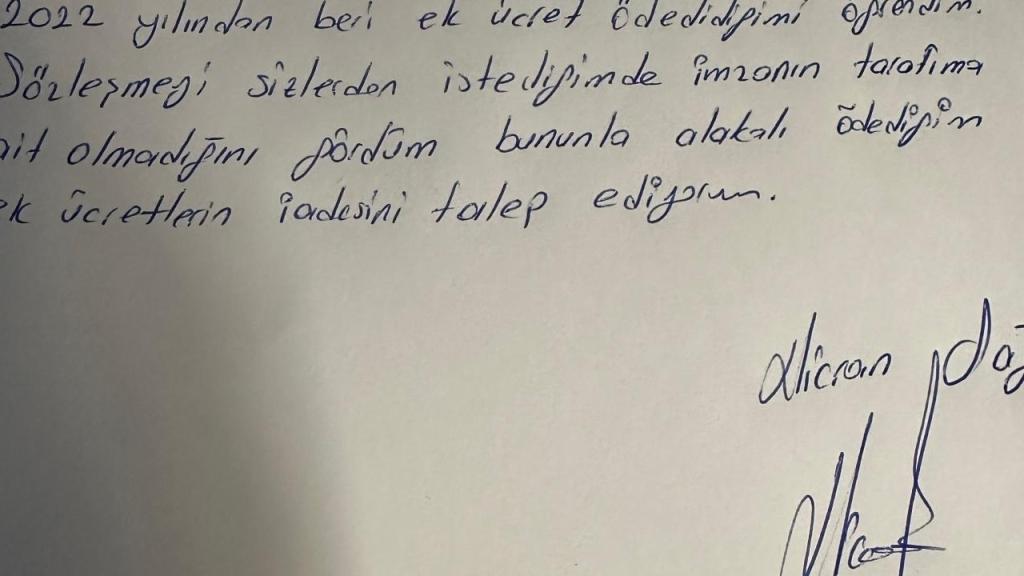 2022 yılından beri ek ücret ödedidiğimi öğrendim.
Sözleşmeyi sizlerden istediğimde imzanın tarafıma
ait olmadığını gördüm bununla alakalı ödediğim
ek ücretlerin iadesini talep ediyorum.
Hicran